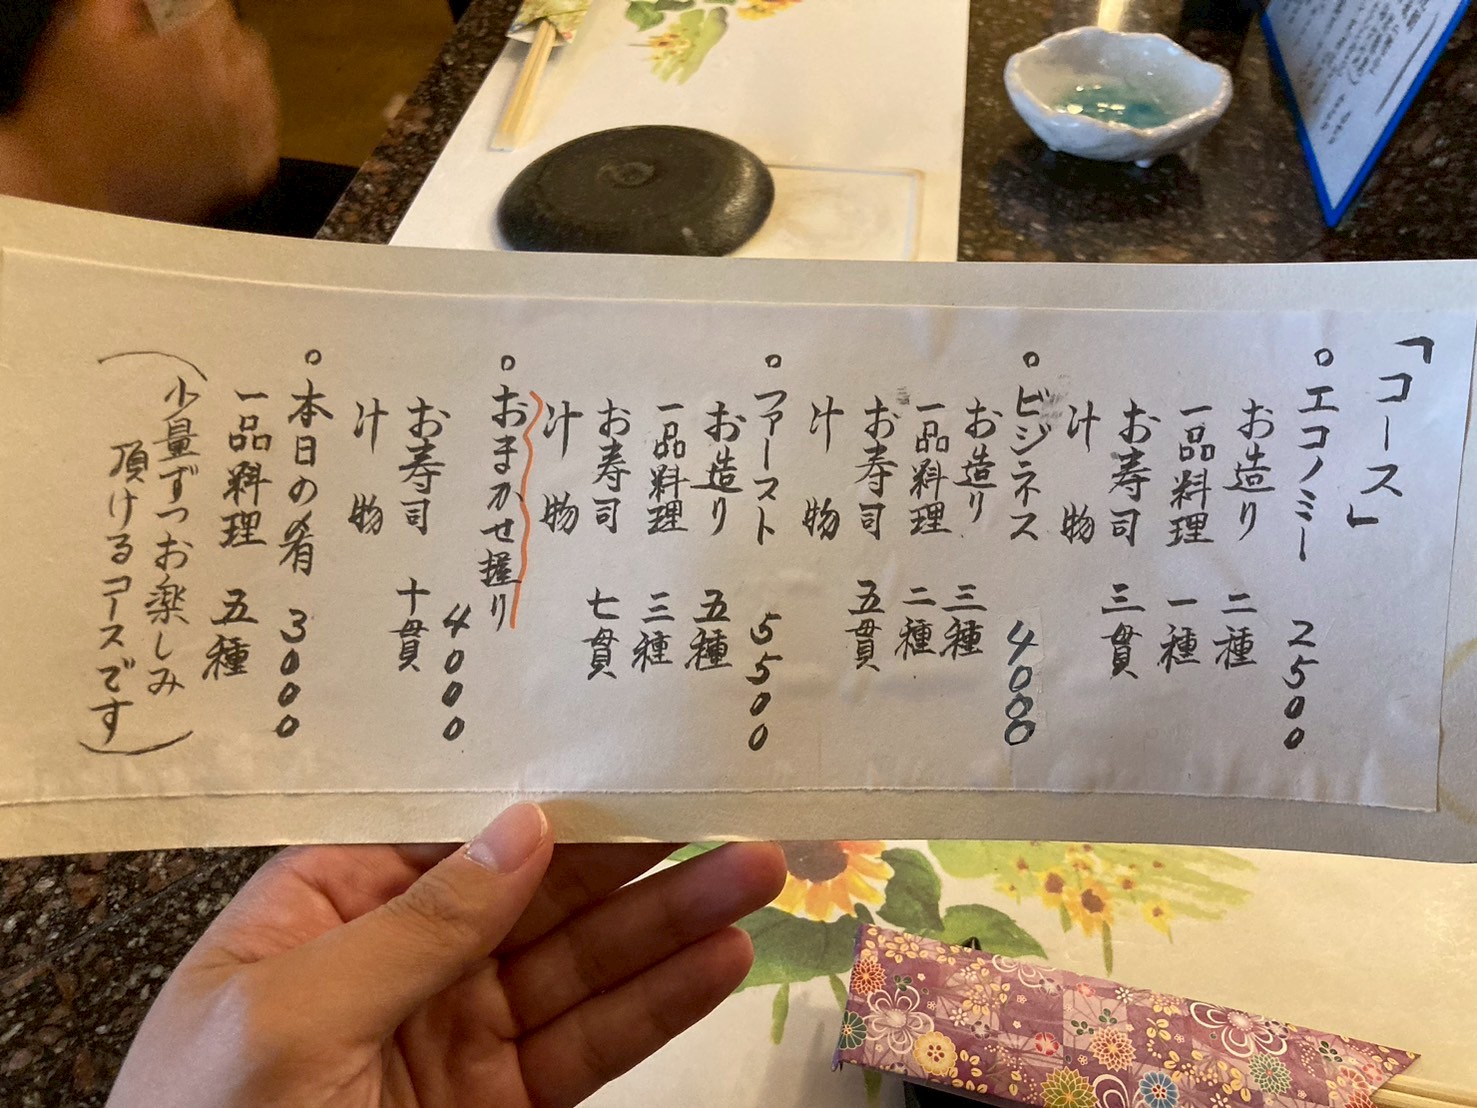 「コース」
○エコノミー 2500
お造り 二種
一品料理 一種
お寿司 三貫
汁物
○ビジネス 4000
お造り 三種
一品料理 二種
お寿司 五貫
汁物
○ファースト 5500
お造り 五種
一品料理 三種
お寿司 七貫
汁物
○おまかせ握り 4000
お寿司 十貫
汁物
○本日の肴 3000
一品料理 五種
(少量ずつお楽しみ
頂けるコースです)